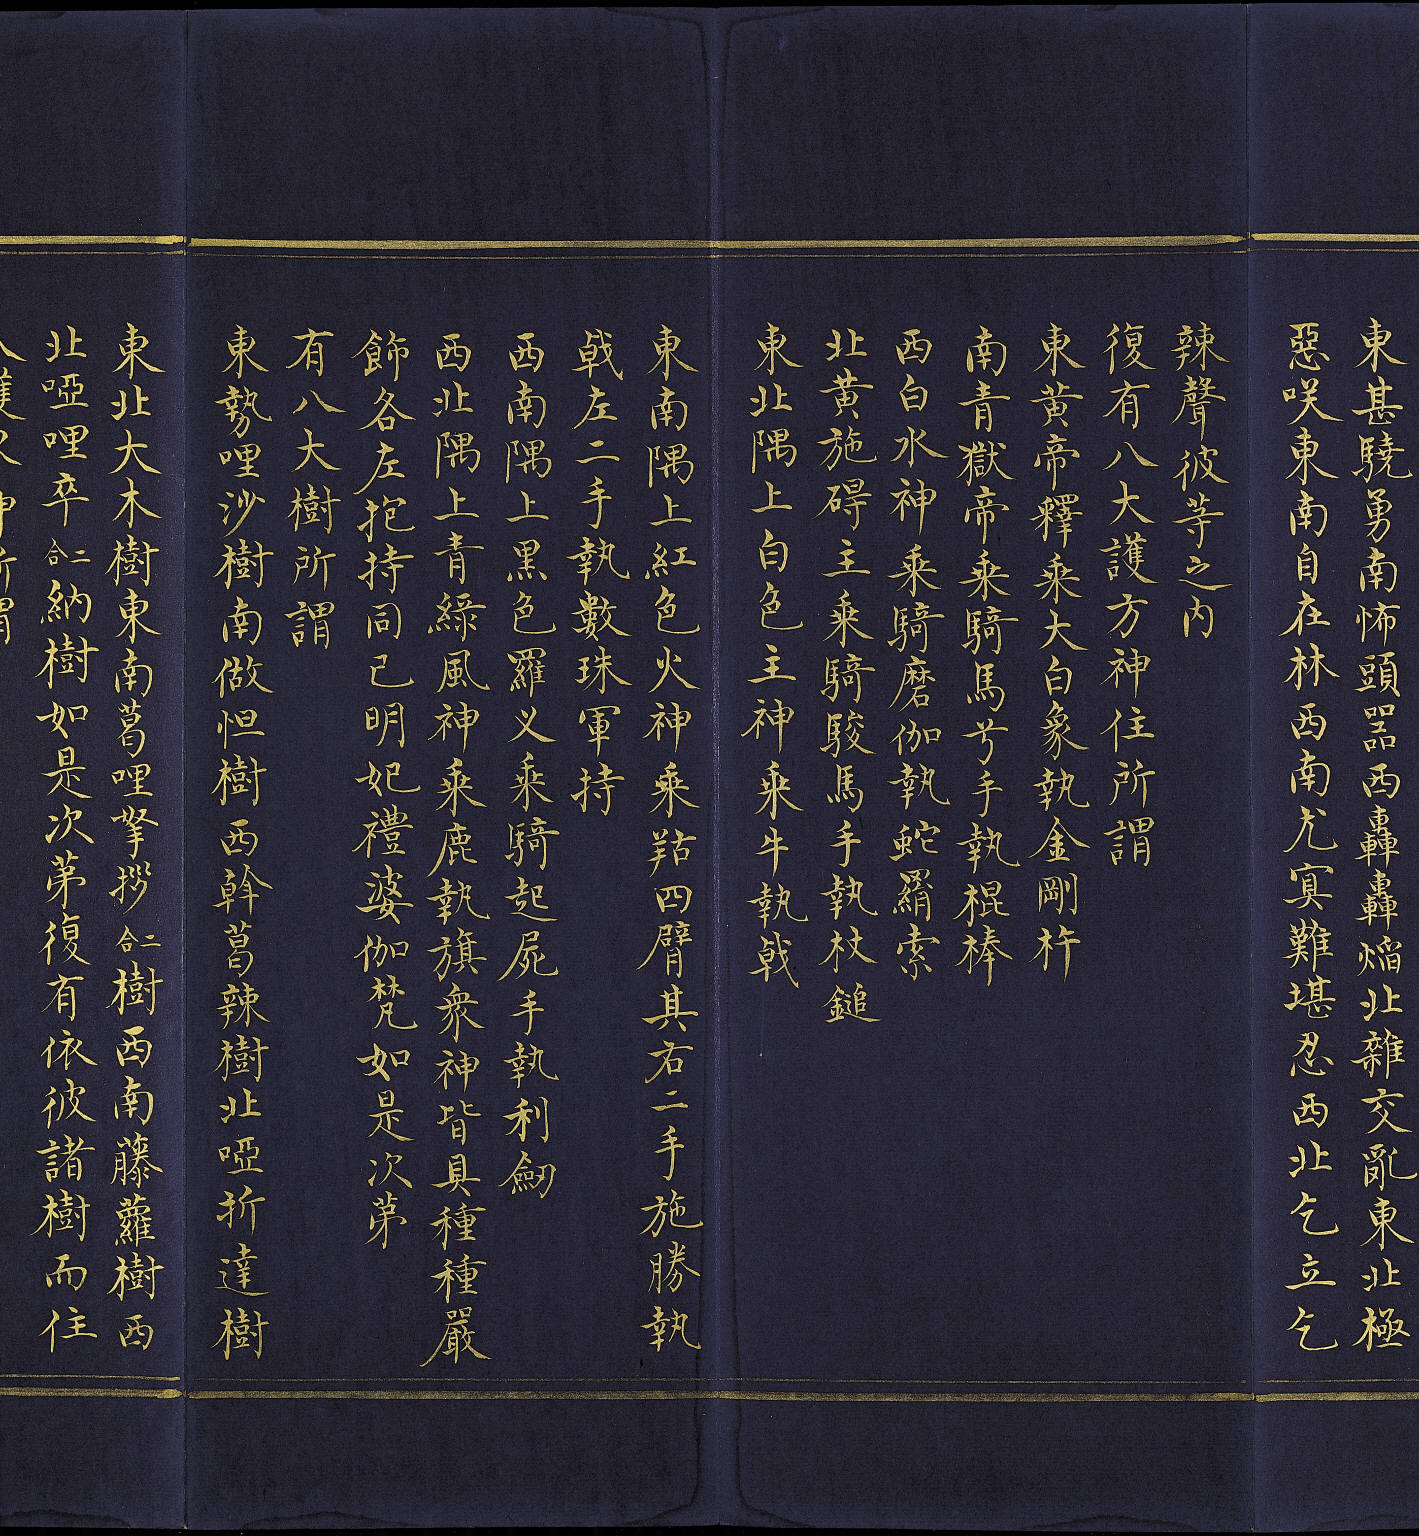 東甚驍勇南怖頭器西轟轟焰北雜交亂東北極
惡咲東南自在林西南尤寞難堪忍西北乞立乞
辣聲彼等之內
復有八大護方神住所謂
東黃帝釋乘大白象執金剛杵
南青獄帝乘騎馬兮手執棍棒
西白水神乘騎磨伽執蛇羂索
北黃施碍主乘騎駿馬手執杖鎚
東北隅上白色主神乘牛執戟
東南隅上紅色火神乘羖四臂其右二手施勝執
戟左二手執數珠軍持
西南隅上黑色羅义乘騎起屍手執利劒
西北隅上青綠風神乘鹿執旗衆神皆具種種嚴
飾各左抱持同己明妃禮婆伽梵如是次第
有八大樹所謂
東勢哩沙樹南做怛樹西斡葛辣樹北啞折達樹
東北大木樹東南葛哩拶二合樹西南藤蘿樹西
北啞哩卒二合納樹如是次第復有依彼諸樹而住